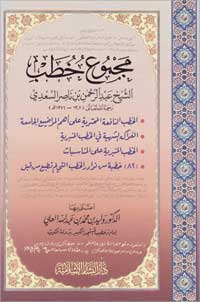 مجموع خطب
الشيخ عبد الرحمن بن ناصر السعدي
رحمه الله تعالى
الخطب النافعة على أهم المواضيع الجامعة
الفواكه الشهية في الخطب المنبرية
الخطب المنبرية على المناسبات
(٨٢) خطبة من نوادر الخطب التي لم تطبع من قبل
اعتنى بها
الدكتور وليد بن محمد بن عبد الله العلي
دار البشائر الإسلامية